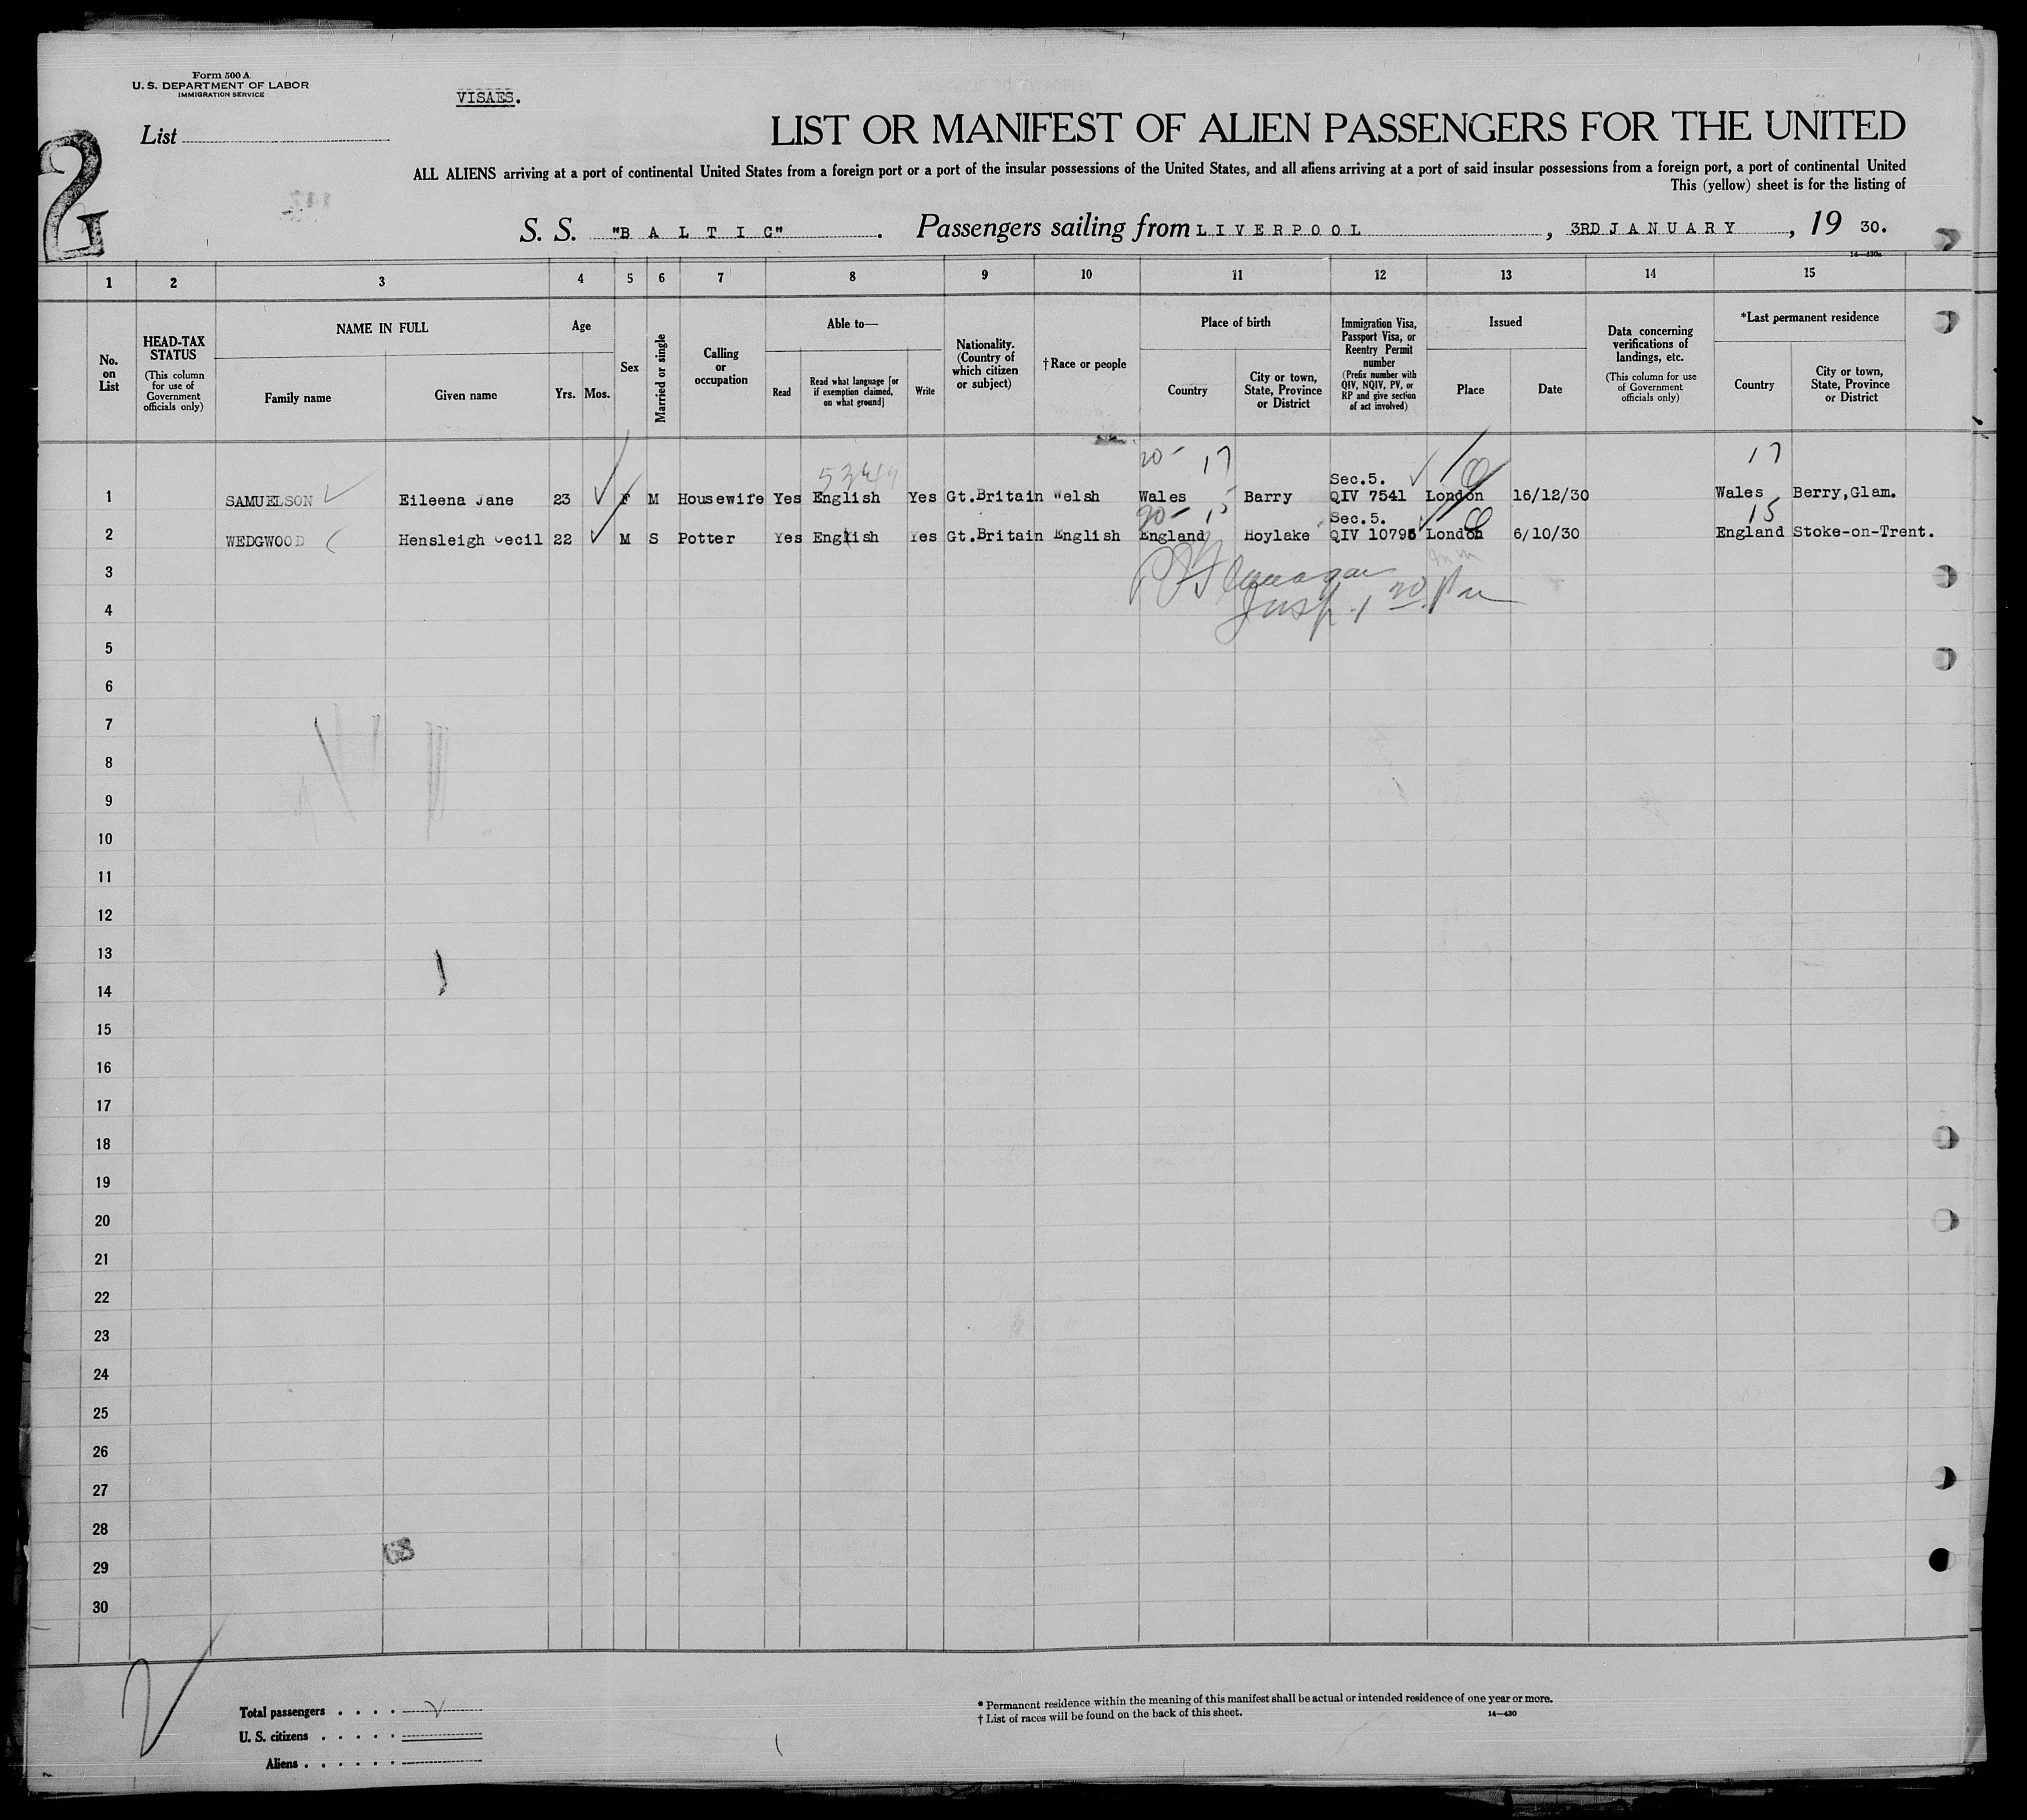 Form 500 A
U. S. DEPARTMENT OF LABOR
IMMIGRATION SERVICE
VISAES.
List
2
LIST OR MANIFEST OF ALIEN PASSENGERS FOR THE UNITED
ALL ALIENS arriving at a port of continental United States from a foreign port or a port of the insular possessions of the United States, and all aliens arriving at a port of said insular possessions from a foreign port, a port of continental United
This (yellow) sheet is for the listing of
S. S. "BALTIC" . Passengers sailing from LIVERPOOL , 3RD JANUARY , 19 30.
14—430a
1 2 3 4 5 6 7 8 9 10 11 12 13 14 15
No. on List
HEAD-TAX STATUS (This column for use of Government officials only)
NAME IN FULL
Family name
Given name
Age
Yrs. Mos.
Sex
Married or single
Calling or occupation
Able to—
Read
Read what language [or if exemption claimed, on what ground]
Write
Nationality. (Country of which citizen or subject)
†Race or people
Place of birth
Country
City or town, State, Province or District
Immigration Visa, Passport Visa, or Reentry Permit number (Prefix number with QIV, NQIV, PV, or RP and give section of act involved)
Issued
Place
Date
Data concerning verifications of landings, etc. (This column for use of Government officials only)
*Last permanent residence
Country
City or town, State, Province or District
20- 17 17
Sec.5.
1 SAMUELSON Eileena Jane 23 F M Housewife Yes English Yes Gt.Britain Welsh Wales Barry QIV 7541 London 16/12/30 Wales Berry,Glam.
20- 15 Sec.5. 15
2 WEDGWOOD Hensleigh Cecil 22 M S Potter Yes English Yes Gt.Britain English England Hoylake QIV 10795 London 6/10/30 England Stoke-on-Trent.
3
4
5
6
7
8
9
10
11
12
13
14
15
16
17
18
19
20
21
22
23
24
25
26
27
28
68
29
30
Total passengers
U. S. citizens
Aliens
* Permanent residence within the meaning of this manifest shall be actual or intended residence of one year or more.
† List of races will be found on the back of this sheet.
14—430